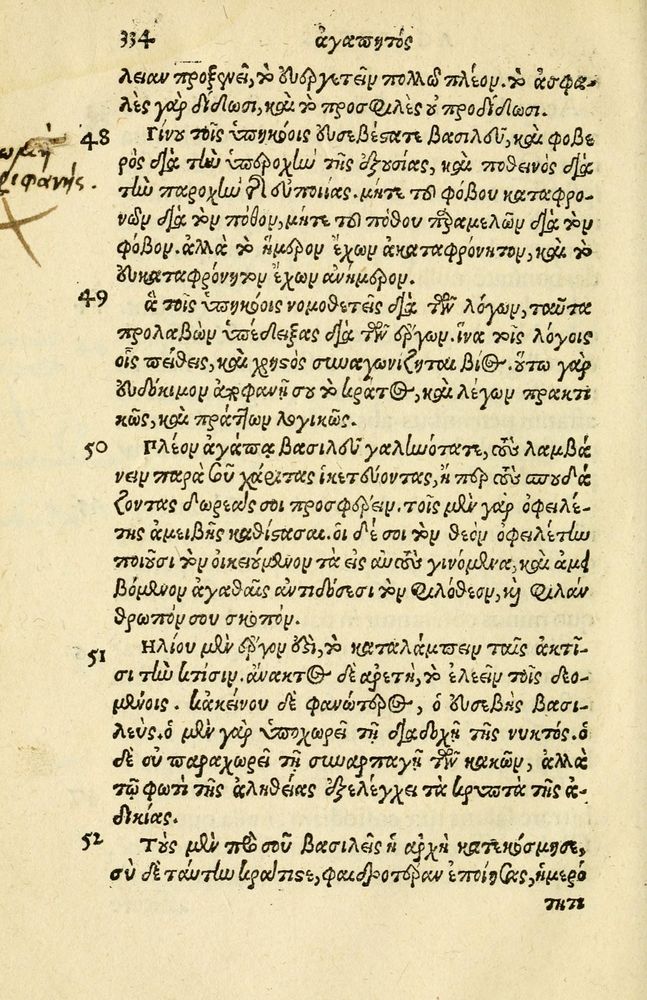 334 ἀγαπητός
λειαν προξενεῖ, τὸ εὐεργετεῖν πολλῷ πλέον. τὸ ἀσφα-
λὲς γὰρ δίδωσι, καὶ τὸ προσφιλὲς οὐ προδίδωσι.
48 Γίνου τοῖς ὑπηκόοις εὐσεβέστατε βασιλεῦ, καὶ φοβε
ρὸς διὰ τὴν ὑπεροχὴν τῆς ἐξουσίας, καὶ ποθεινὸς διὰ
τὴν παροχὴν τῆς εὐποιΐας. μήτε τοῦ φόβου καταφρο-
νῶν διὰ τὸν πόθον, μήτε τοῦ πόθου παραμελῶν διὰ τὸν
φόβον. ἀλλὰ τὸ ἥμερον ἔχων ἀκαταφρόνητον, καὶ τὸ
εὐκαταφρόνητον ἔχων ἀνήμερον.
49 ἃ τοῖς ὑπηκόοις νομοθετεῖς διὰ τῶν λόγων, ταῦτα
προλαβὼν ὑπέδειξας διὰ τῶν ἔργων. ἵνα τοῖς λόγοις
οἷς πείθεις, καὶ χρηστὸς συναγωνίζηται βίος. οὕτω γὰρ
εὐδόκιμον ἀποφανῇ σου τὸ κράτος, καὶ λέγων πρακτι
κῶς, καὶ πράττων λογικῶς.
50 Πλέον ἀγάπα βασιλεῦ γαληνότατε, τοὺς λαμβά
νειν παρὰ σοῦ χάριτας ἱκετεύοντας, ἤπερ τοὺς σπουδά
ζοντας δωρεάς σοι προσφέρειν. τοῖς μὲν γὰρ ὀφειλέ-
της ἀμειβῆς καθίστασαι. οἱ δέ σοι τὸν θεὸν ὀφειλέτην
ποιοῦσι τὸν οἰκειούμενον τὰ εἰς αὐτοὺς γινόμενα, καὶ ἀμει
βόμενον ἀγαθαῖς ἀντιδόσεσι τὸν φιλόθεον, καὶ φιλάν
θρωπόν σου σκοπόν.
51 Ηλίου μὲν ἔργον ἐστὶ, τὸ καταλάμπειν ταῖς ἀκτῖ-
σι τὴν κτίσιν. ἄνακτος δὲ ἀρετὴ, τὸ ἐλεεῖν τοῖς δεο-
μένοις. κἀκείνου δὲ φανώτερος, ὁ εὐσεβὴς βασι-
λεύς. ὁ μὲν γὰρ ὑποχωρεῖ τῇ διαδοχῇ τῆς νυκτός. ὁ
δὲ οὐ παραχωρεῖ τῇ συναρπαγῇ τῶν κακῶν, ἀλλὰ
τῷ φωτὶ τῆς ἀληθείας ἐξελέγχει τὰ κρυπτὰ τῆς ἀ-
δικίας.
52 Τοὺς μὲν πρὸ σοῦ βασιλεῖς ἡ ἀρχὴ κατεκόσμησε,
σὺ δὲ ταύτην κράτιστε, φαιδροτέραν ἐποίησας, ἡμερό
τητι